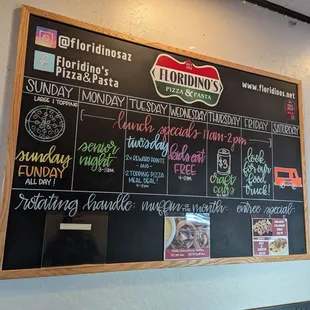 @floridinosaz
Floridino's
Pizza&Pasta
FLORIDINO'S
PIZZA & PASTA
www.floridinos.net
SUNDAY
MONDAY
TUESDAY
WEDNESDAY
THURSDAY
FRIDAY
SATURDAY
LARGE 1 TOPPING
lunch specials 11am-2pm
SUNDAY
FUNDAY
ALL DAY!
senior
night
twosday
2X REWARD POINTS
AND
2 TOPPING PIZZA
MEAL DEAL!
kids eat
FREE
$3
CRAFT
CANS
look
for our
food
truck!
rotating handle:
muffin of the month:
entree special: